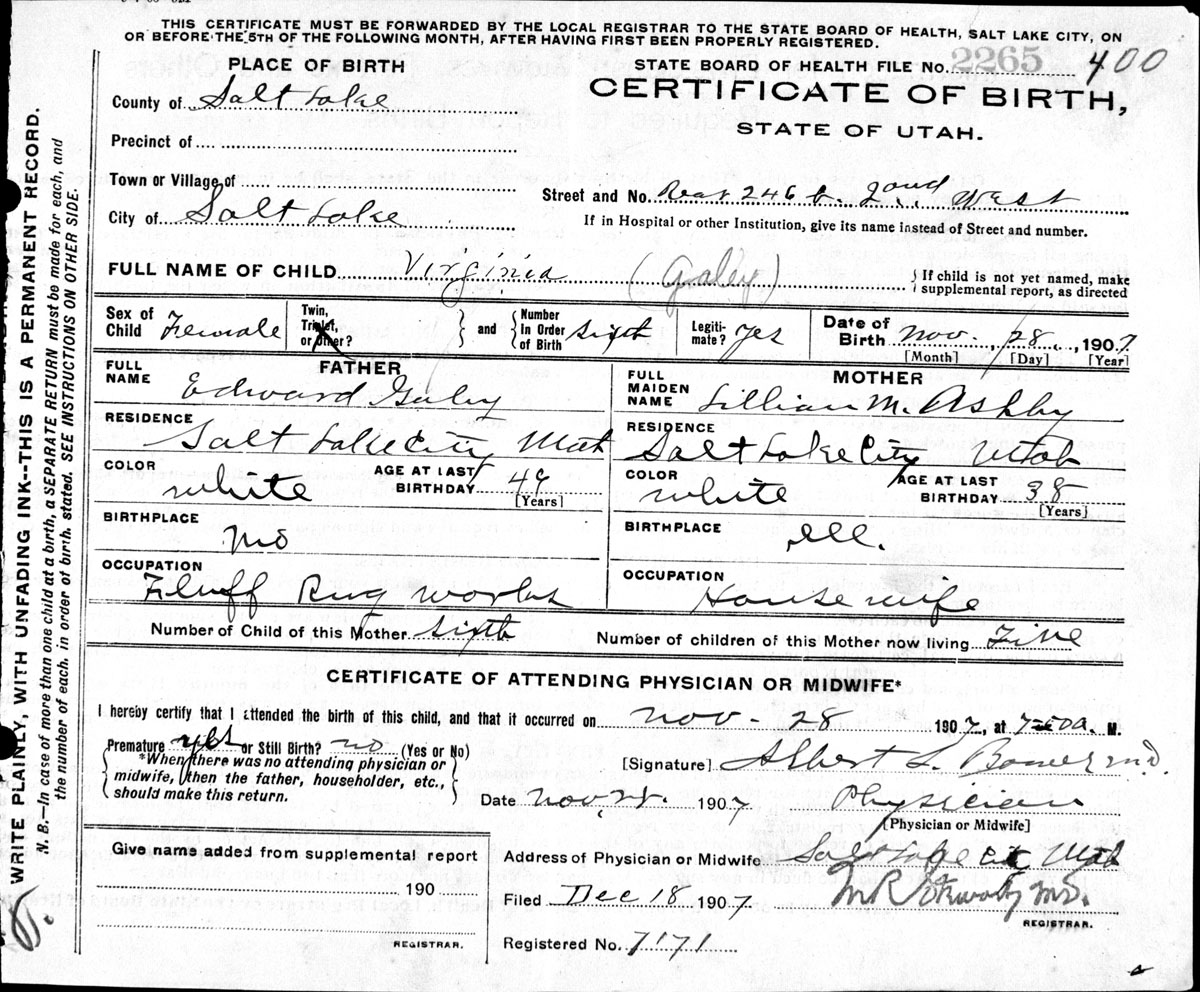 THIS CERTIFICATE MUST BE FORWARDED BY THE LOCAL REGISTRAR TO THE STATE BOARD OF HEALTH, SALT LAKE CITY, ON
OR BEFORE THE 5TH OF THE FOLLOWING MONTH, AFTER HAVING FIRST BEEN PROPERLY REGISTERED.
PLACE OF BIRTH
STATE BOARD OF HEALTH FILE No. 2265 400
CERTIFICATE OF BIRTH,
STATE OF UTAH.
County of Salt Lake
Precinct of
Town or Village of
Street and No. Rear 246 2nd West
City of Salt Lake
If in Hospital or other Institution, give its name instead of Street and number.
FULL NAME OF CHILD Virginia (Galey) { If child is not yet named, make
supplemental report, as directed
Sex of Child Female
Twin, Triplet, or Other? } and { Number In Order of Birth Sixth
Legiti-mate? Yes
Date of Birth Nov. 28, 1907
[Month] [Day] [Year]
FATHER
MOTHER
FULL NAME Edward Galey
FULL MAIDEN NAME Lillian M. Ashby
RESIDENCE Salt Lake City Utah
RESIDENCE Salt Lake City Utah
COLOR white AGE AT LAST BIRTHDAY 49 [Years]
COLOR white AGE AT LAST BIRTHDAY 38 [Years]
BIRTHPLACE Mo
BIRTHPLACE Ill.
OCCUPATION Fluff Rug works
OCCUPATION House wife
Number of Child of this Mother Sixth
Number of children of this Mother now living Five
CERTIFICATE OF ATTENDING PHYSICIAN OR MIDWIFE*
I hereby certify that I attended the birth of this child, and that it occurred on Nov - 28 1907, at 7 a. M.
Premature yes or Still Birth? no (Yes or No)
{ *When there was no attending physician or
midwife, then the father, householder, etc.,
should make this return. }
[Signature] Albert L. M.D.
Date Nov 1907 Physician
[Physician or Midwife]
Give name added from supplemental report
190
REGISTRAR.
Address of Physician or Midwife Salt Lake Utah
Filed Dec 18 1907 M.D.
REGISTRAR.
Registered No. 7171
WRITE PLAINLY, WITH UNFADING INK--THIS IS A PERMANENT RECORD.
N. B.—In case of more than one child at a birth, a SEPARATE RETURN must be made for each, and
the number of each, in order of birth, stated. SEE INSTRUCTIONS ON OTHER SIDE.